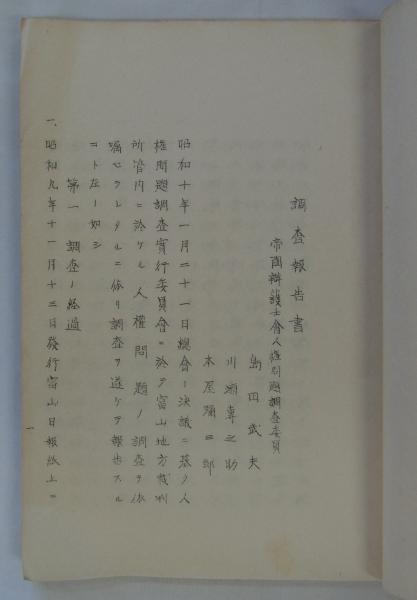 調査報告書
帝國辯護士會人権問題調査委員
島田武夫
川瀬專之助
本屋彌三郎
昭和十年一月二十一日總會ノ決議ニ基ク人
権問題調査實行委員會ニ於テ富山地方裁判
所管内ニ於ケル人権問題ノ調査ヲ依
嘱セラレタルニ依リ調査ヲ遂ケ報告スル
コト左ノ如シ
第一 調査ノ経過
一、昭和九年十一月十三日發行富山日報紙上ニ
一